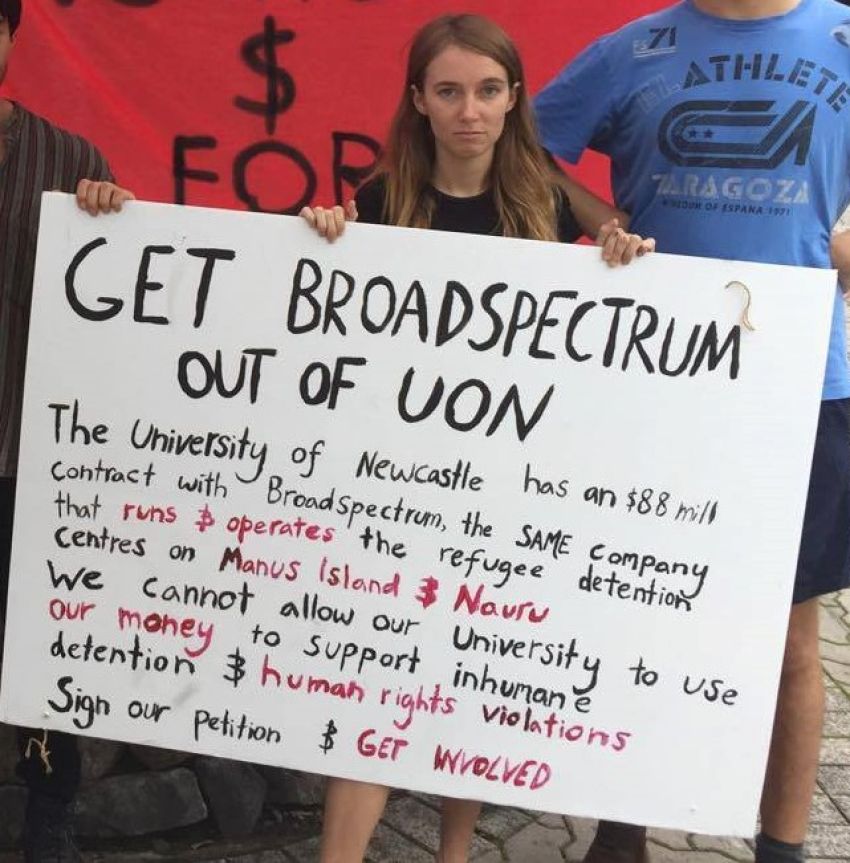 $
FOR
71
ATHLETE
ZARAGOZA
KINGDOM OF ESPANA 1971
GET BROADSPECTRUM
OUT OF UON
The University of Newcastle has an $88 mill
contract with Broadspectrum, the SAME company
that runs & operates the refugee detention
centres on Manus Island & Nauru
We cannot allow our University to use
our money to support inhumane
detention & human rights violations
Sign our petition & GET INVOLVED